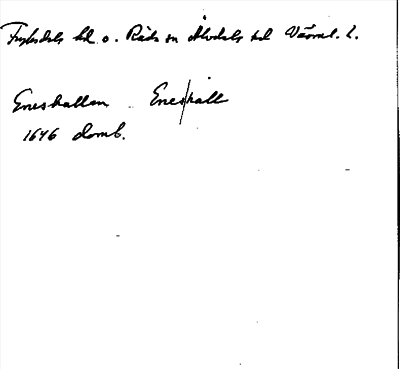 Fryksdals hd o. Råda sn Älvdals hd Värml. l.
Eneskallen Enes/kall
1646 domb.